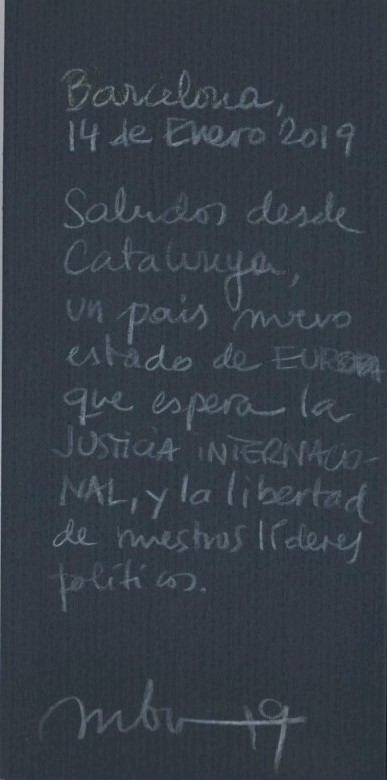 Barcelona,
14 de Enero 2019
Saludos desde
Catalunya,
un país nuevo
estado de EUROPA
que espera la
JUSTICIA INTERNACIO-
NAL, y la libertad
de nuestros líderes
políticos.
19